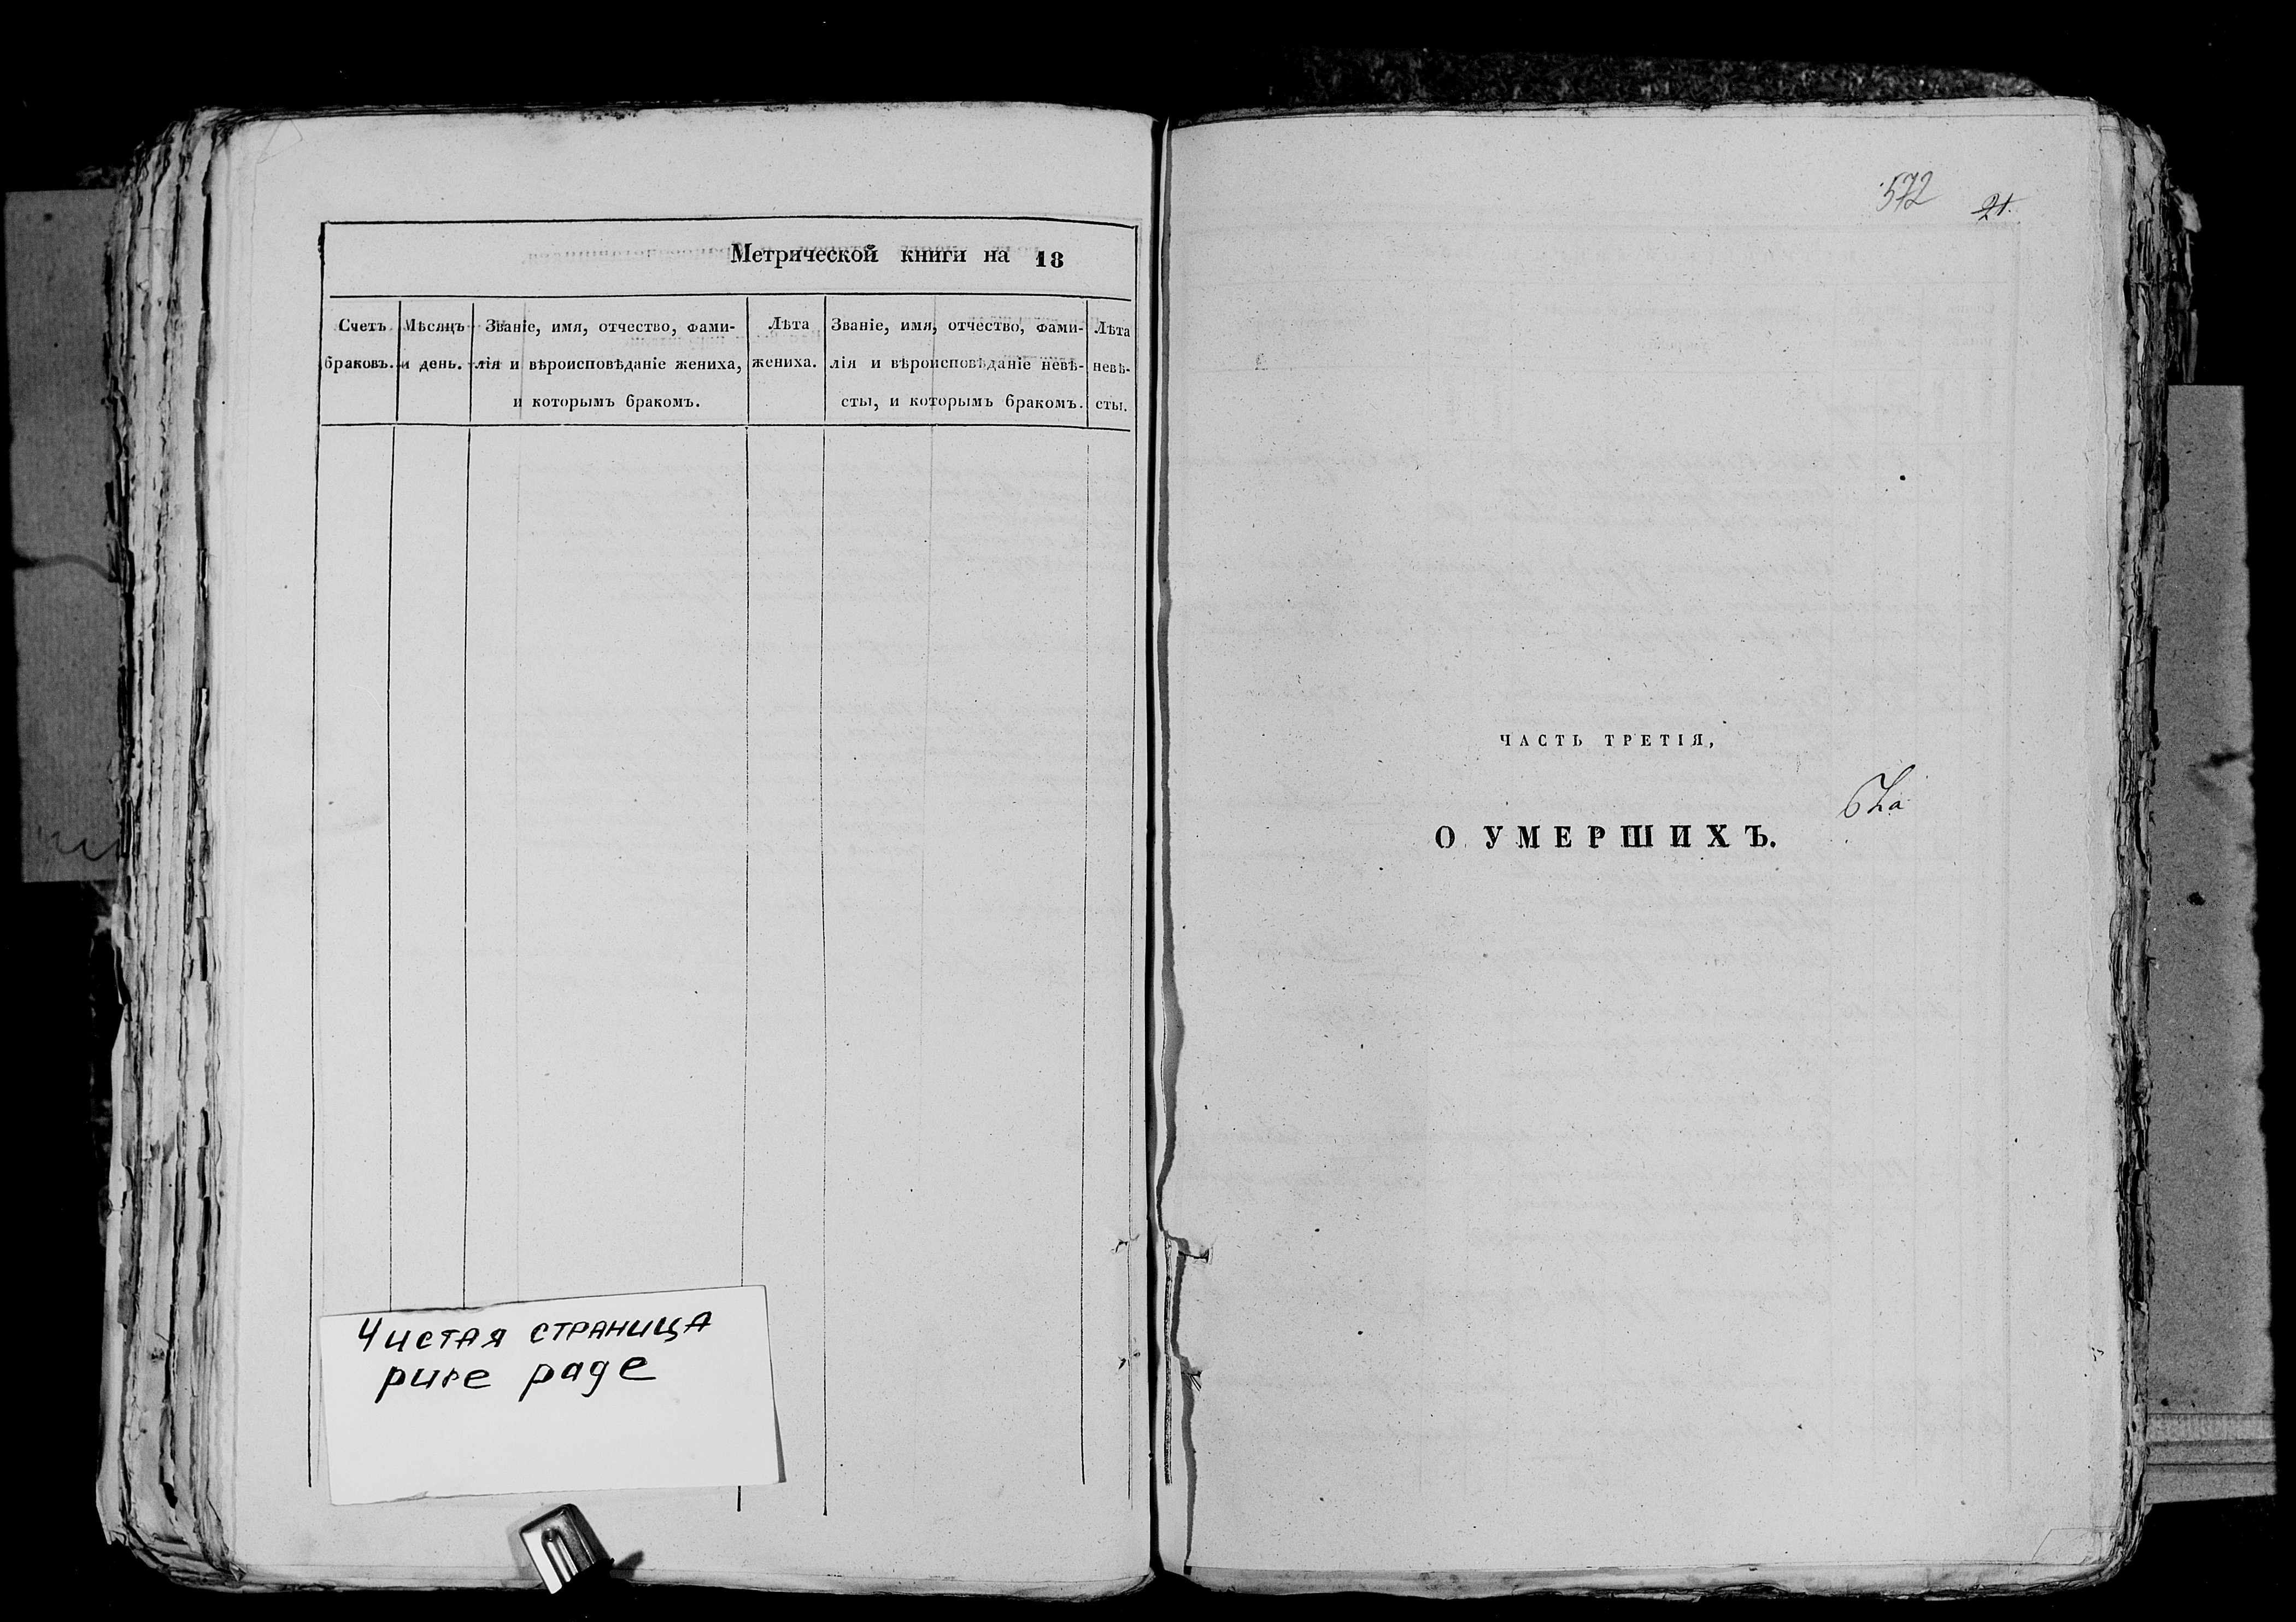 Метрической книги на 18
Счетъ браковъ.
Мѣсяцъ и день.
Званіе, имя, отчество, фами-
лія и вѣроисповѣданіе жениха,
и которымъ бракомъ.
Лѣта
жениха.
Званіе, имя, отчество, фами-
лія и вѣроисповѣданіе невѣ-
сты, и которымъ бракомъ.
Лѣта
невѣ-
сты.
Чистая страница
pure page
572
21.
ЧАСТЬ ТРЕТІЯ,
О УМЕРШИХЪ.